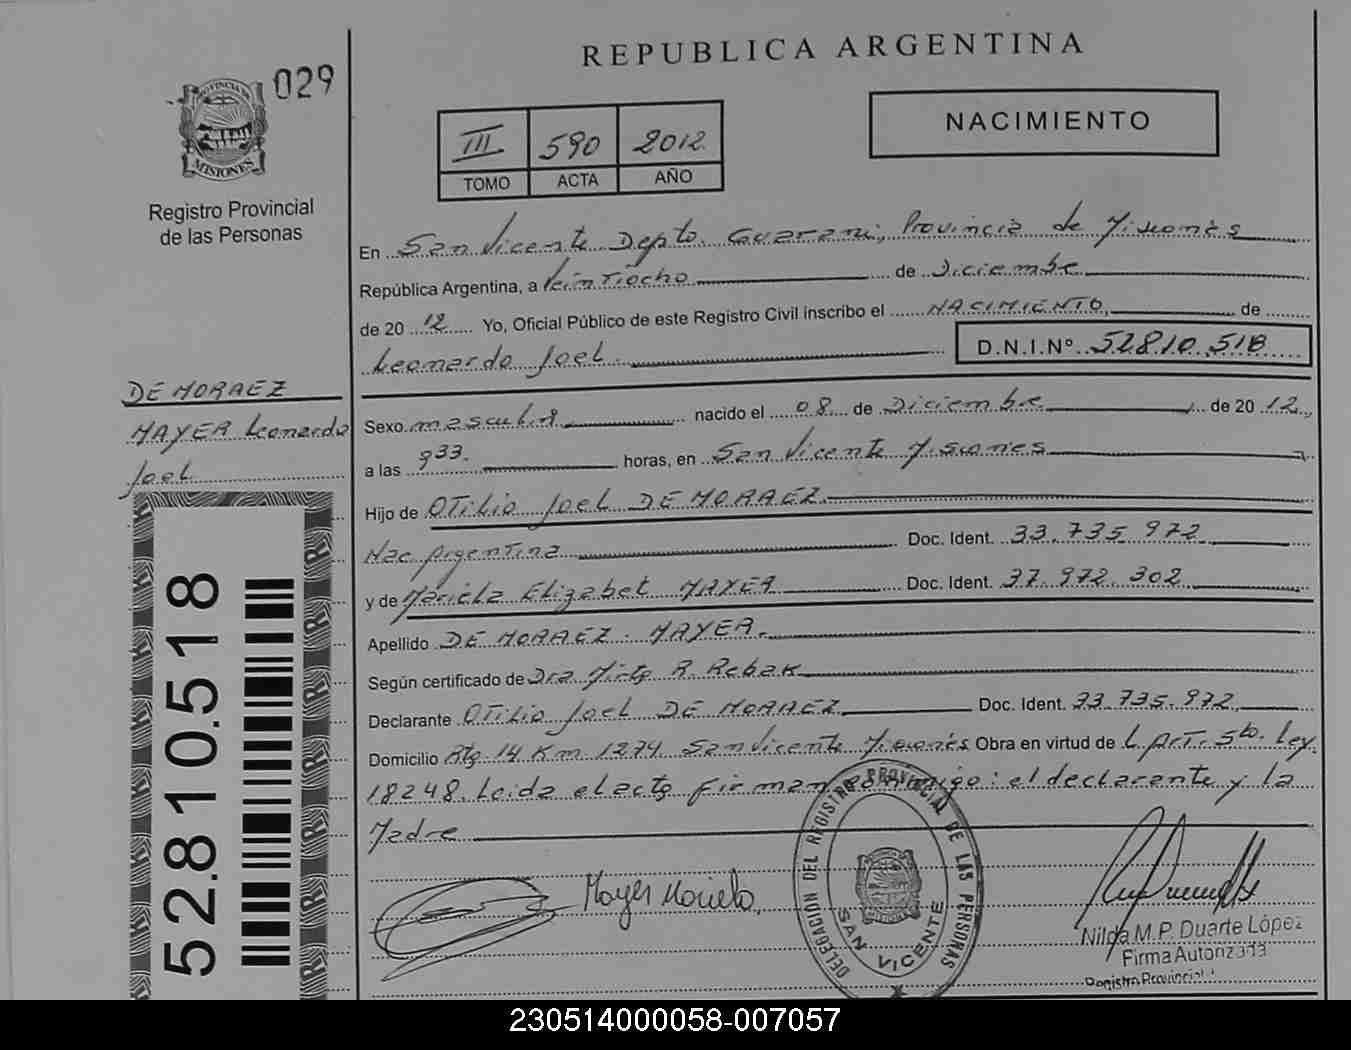 029
REPUBLICA ARGENTINA
PROVINCIA DE MISIONES
III 590 2012
TOMO ACTA AÑO
NACIMIENTO
Registro Provincial
de las Personas
En San Vicente Depto. Guarani, Provincia de Misiones
República Argentina, a Veintiocho de Diciembre
de 20 12 Yo, Oficial Público de este Registro Civil inscribo el NACIMIENTO de
Leonardo Joel. D.N.I.Nº 52.810.518
DE MORAEZ
MAYER Leonardo
Joel
Sexo masculi nacido el 08 de Diciembre de 20 12
a las 9 33. horas, en San Vicente Misiones
Hijo de OTilio Joel DE MORAEZ
Nac Argentina Doc. Ident. 33.735.972
y de Mariela Elizabet MAYER Doc. Ident. 37.972.302
Apellido DE MORAEZ MAYER.
Según certificado de Dra Mirta R. Rebak
Declarante OTilio Joel DE MORAEZ Doc. Ident. 33.735.972
Domicilio Rta 14 Km 1274 San Vicente Misiones Obra en virtud de L ArT. 5to. Ley
18248. Leida el acta firman conmigo: el declarante y la
Madre
52.810.518
Mayer Mariela
DELEGACIÓN DEL REGISTRO PROVINCIAL DE LAS PERSONAS
SAN VICENTE
Nilda M.P. Duarte López
Firma Autorizada
Registro Provincial
230514000058-007057